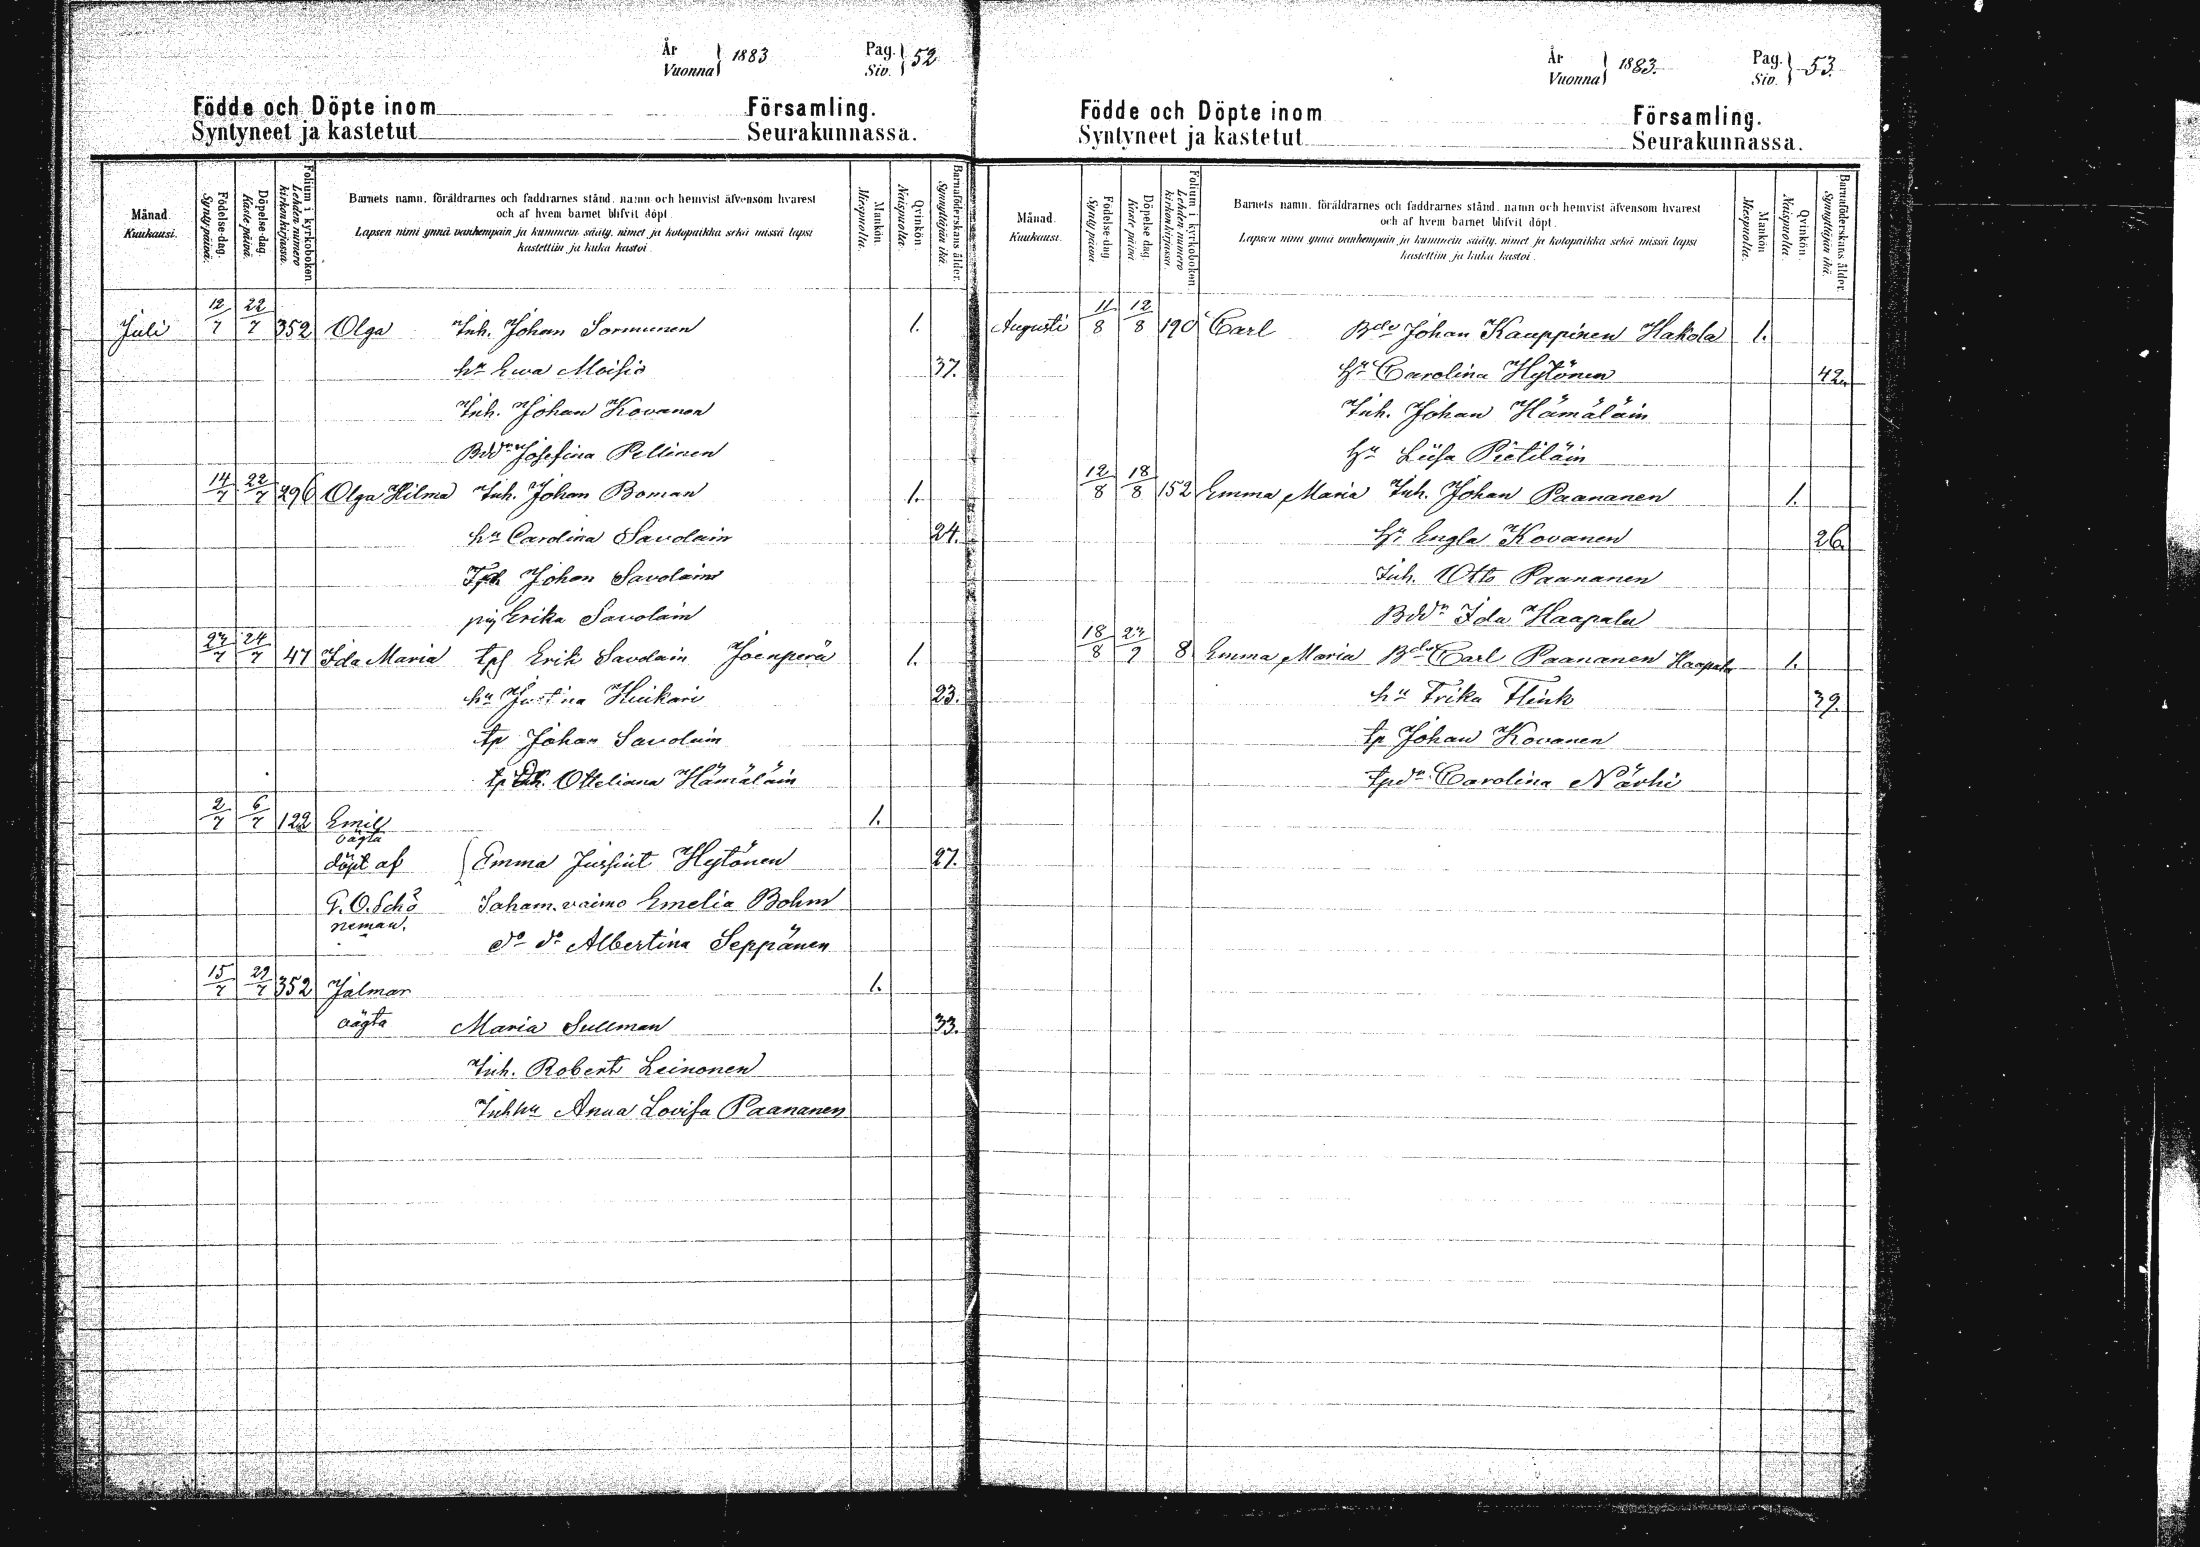 År
Vuonna } 1883
Pag.
Siv. } 52
Födde och Döpte inom Församling.
Syntyneet ja kastetut Seurakunnassa.
Månad. Kuukausi.
Födelse-dag. Synty päivä.
Döpelse-dag. Kaste päivä.
Folium i kyrkoboken. Lehden numero kirkonkirjassa.
Barnets namn, föräldrarnes och faddrarnes stånd, namn och hemvist äfvensom hvarest
och af hvem barnet blifvit döpt.
Lapsen nimi ynnä vanhempain ja kummein sääty, nimet ja kotopaikka sekä missä lapsi
kastettiin ja kuka kastoi.
Mankön. Miespuolta.
Qvinkön. Naispuolta.
Barnaföderskans ålder. Synnyttäjän ikä.
Juli 12/7 22/7 352 Olga Inh. Johan Sormunen 1.
hu Ewa Moisio 37.
Inh. Johan Kovanen
Bddr Josefina Pellinen
14/7 22/7 296 Olga Hilma Inh. Johan Boman 1.
hu Carolina Savolain 24.
Johan Savolain
pig Erika Savolain
23/7 24/7 47 Ida Maria Erik Savolain Joenperä 1.
hu Justina Huikari 23.
tp Johan Savolain
tp Otteliana Hämäläin
2/7 6/7 122 Emil 1.
oägta
döpt af Emma Jussint Hytönen 27.
G.O. Schö Saham. vaimo Emelia Bohm
neman. do do Albertina Seppänen
15/7 29/7 352 Jalmar 1.
oägta Maria Sullman 33.
Inh. Robert Leinonen
Inhhu Anna Lovisa Paananen
År
Vuonna } 1883.
Pag.
Siv. } 53.
Födde och Döpte inom Församling.
Syntyneet ja kastetut Seurakunnassa.
Månad. Kuukausi.
Födelse-dag Synty päivä.
Döpelse dag. Kaste päivä.
Folium i kyrkoboken Lehden numero kirkonkirjassa.
Barnets namn, föräldrarnes och faddrarnes stånd, namn och hemvist äfvensom hvarest
och af hvem barnet blifvit döpt.
Lapsen nimi ynnä vanhempain ja kummein sääty, nimet ja kotopaikka sekä missä lapsi
kastettiin ja kuka kastoi.
Mankön Miespuolta.
Qvinkön. Naispuolta.
Barnaföderskans ålder. Synnyttäjän ikä.
Augusti 11/8 12/8 190 Carl Bde Johan Kauppinen Hakola 1.
hu Carolina Hytönen 42.
Inh. Johan Hämäläin
hu Liisa Pietiläin
12/8 18/8 152 Emma Maria Inh. Johan Paananen 1.
hu Engla Kovanen 26.
Inh. Otto Paananen
Bddr Ida Haapala
18/8 8 Emma Maria Bde Carl Paananen Haapala 1.
hu Frika Flink 39.
tp Johan Kovanen
tpdr Carolina Närhi